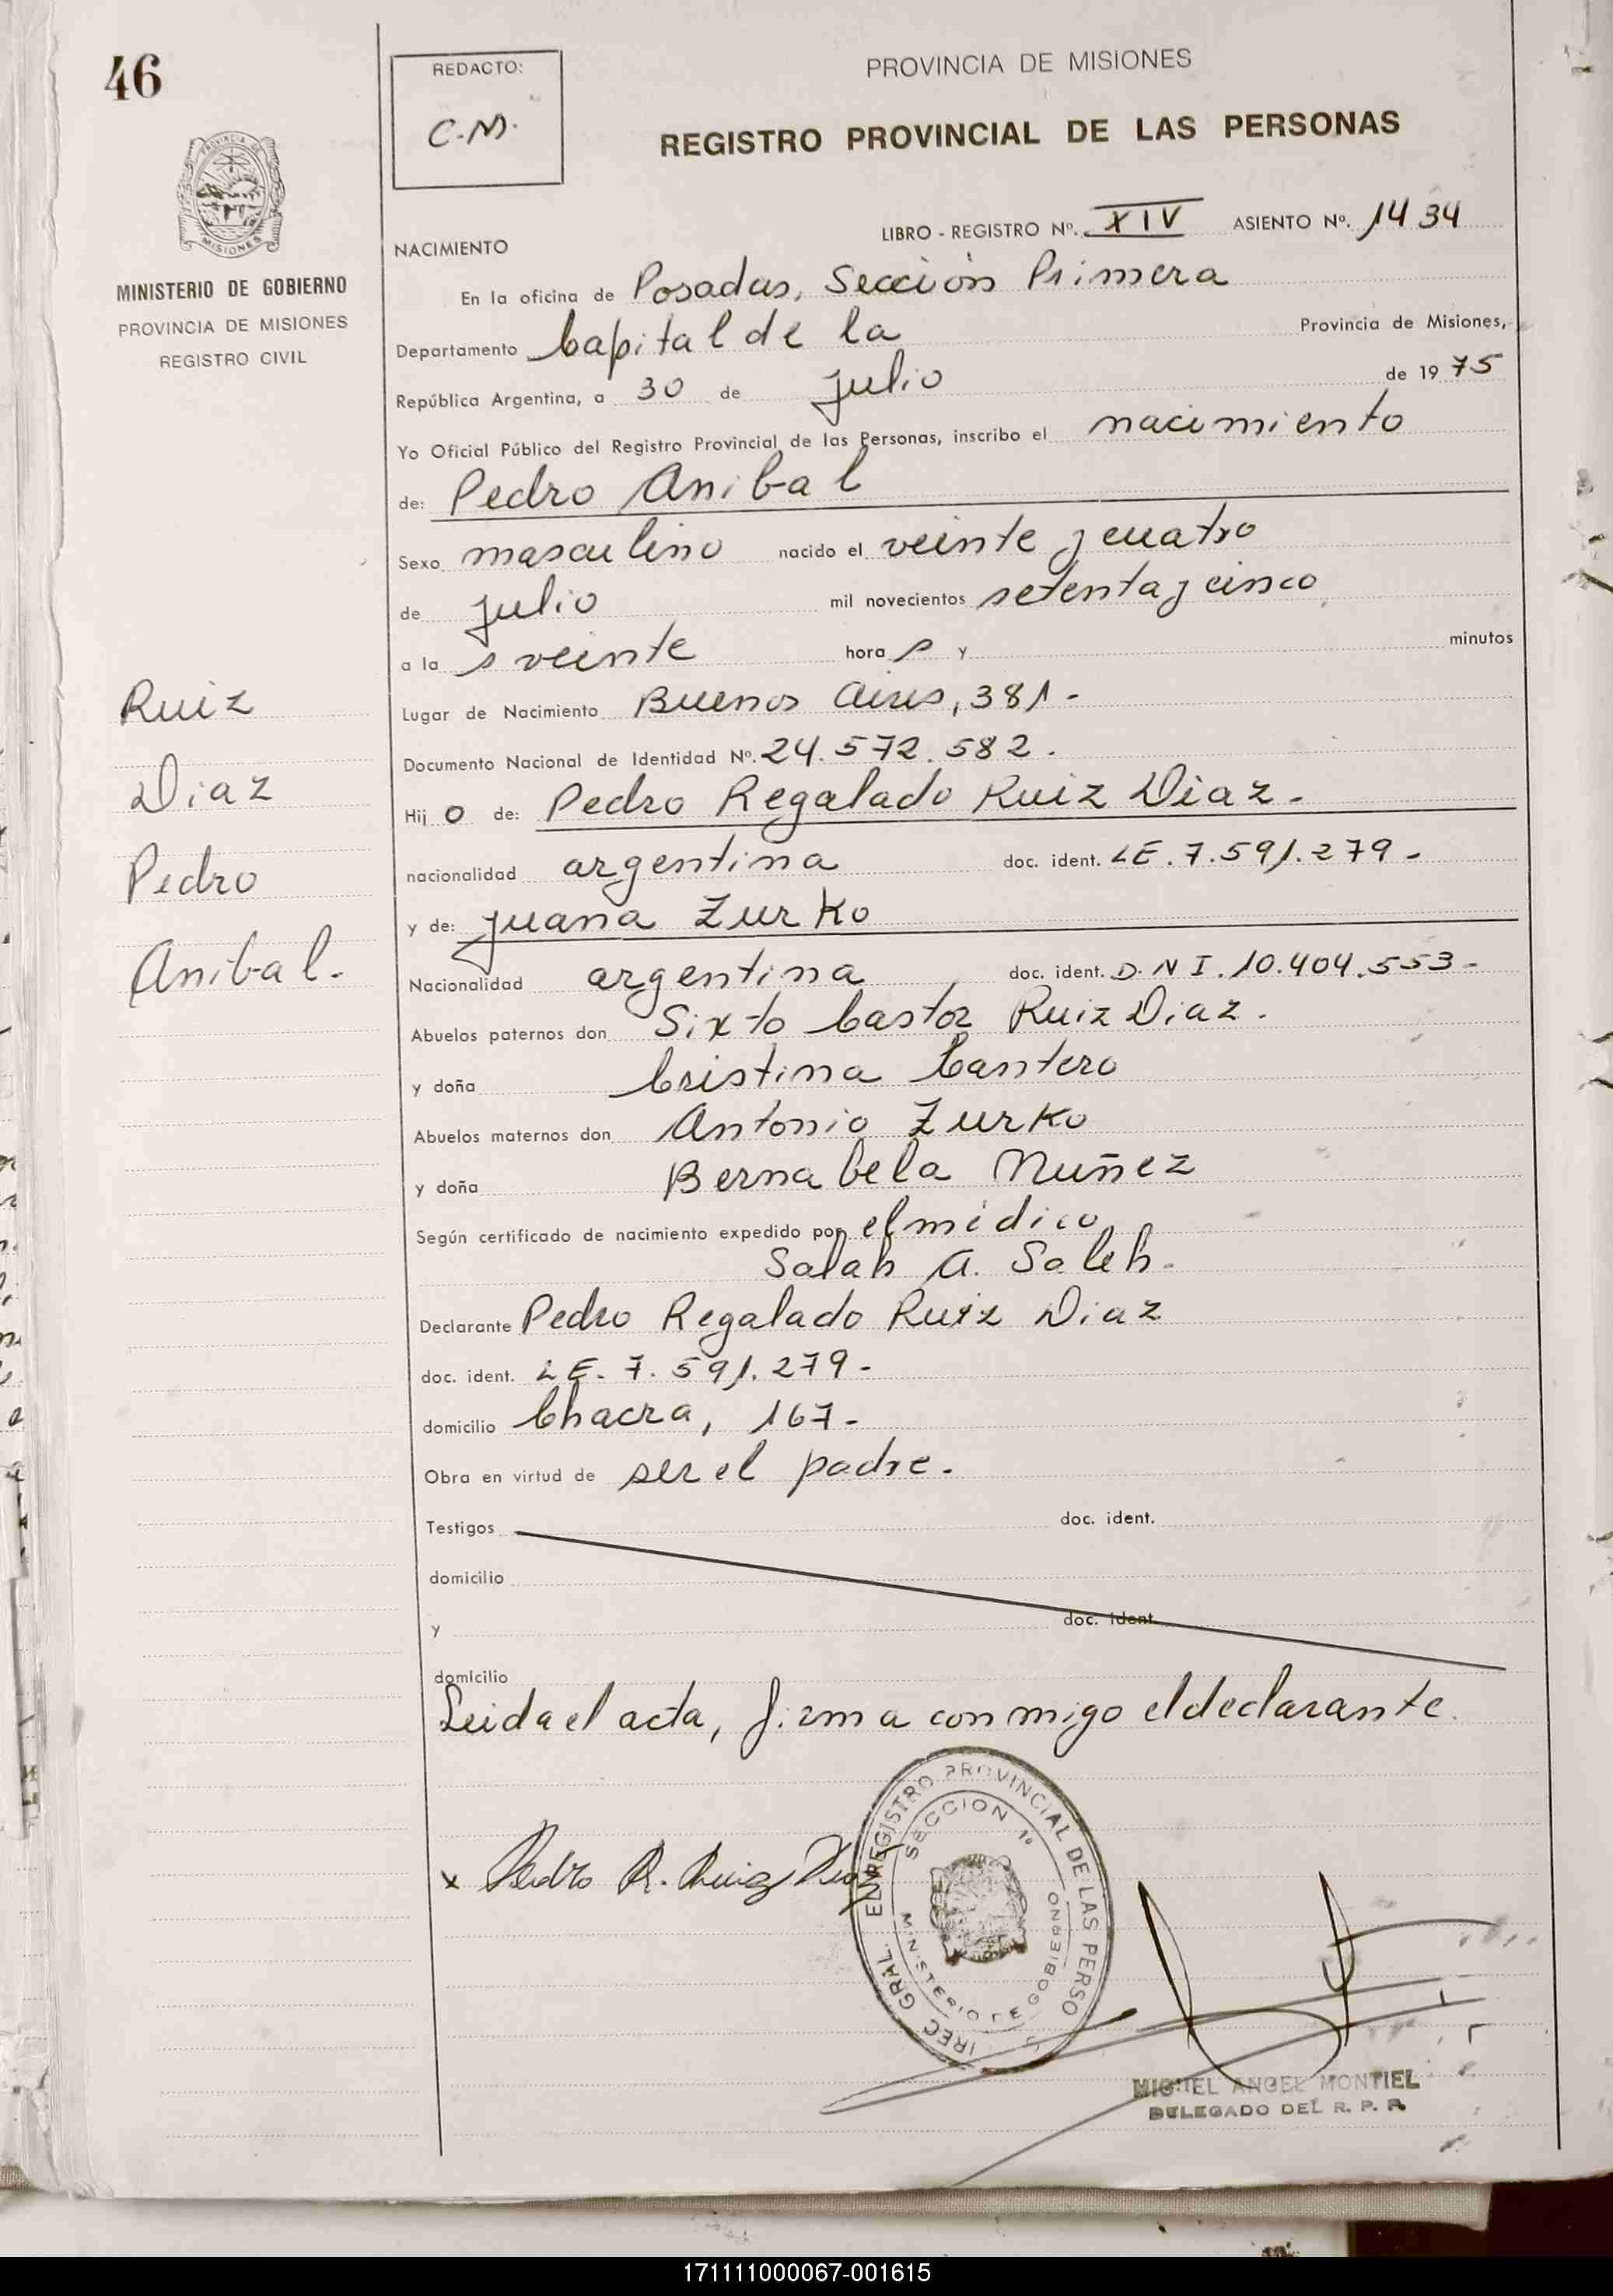 46
REDACTO:
C-M.
PROVINCIA DE MISIONES
REGISTRO PROVINCIAL DE LAS PERSONAS
PROVINCIA DE
MISIONES
MINISTERIO DE GOBIERNO
PROVINCIA DE MISIONES
REGISTRO CIVIL
LIBRO - REGISTRO Nº. XIV ASIENTO Nº. 1434
NACIMIENTO
En la oficina de Posadas, Sección Primera
Departamento Capital de la Provincia de Misiones,
República Argentina, a 30 de julio de 1975
Yo Oficial Público del Registro Provincial de las Personas, inscribo el nacimiento
de: Pedro Anibal
Sexo masculino nacido el veinte y cuatro
de julio mil novecientos setenta y cinco
a la s veinte hora s y minutos
Lugar de Nacimiento Buenos Aires, 381-
Documento Nacional de Identidad Nº. 24.572.582.
Hij o de: Pedro Regalado Ruiz Diaz.
nacionalidad argentina doc. ident. LE.7.591.279-
y de: Juana Zurko
Nacionalidad argentina doc. ident. D.N I.10.404.553-
Abuelos paternos don Sixto Castor Ruiz Diaz.
y doña Cristina Cantero
Abuelos maternos don Antonio Zurko
y doña Bernabela Nuñez
Según certificado de nacimiento expedido por el médico
Salah A. Saleh.
Declarante Pedro Regalado Ruiz Diaz
doc. ident. LE. 7.591.279-
domicilio Chacra, 167-
Obra en virtud de ser el padre.
Testigos doc. ident.
domicilio
y doc. ident.
domicilio
Leida el acta, firma conmigo el declarante.
Ruiz
Diaz
Pedro
Anibal.
x Pedro R. Ruiz Diaz
REGISTRO PROVINCIAL DE LAS PERSO
SECCION 1º
MINISTERIO DE GOBIERNO
GRAL.
MIGUEL ANGEL MONTIEL
DELEGADO DEL R. P. P.
171111000067-001615